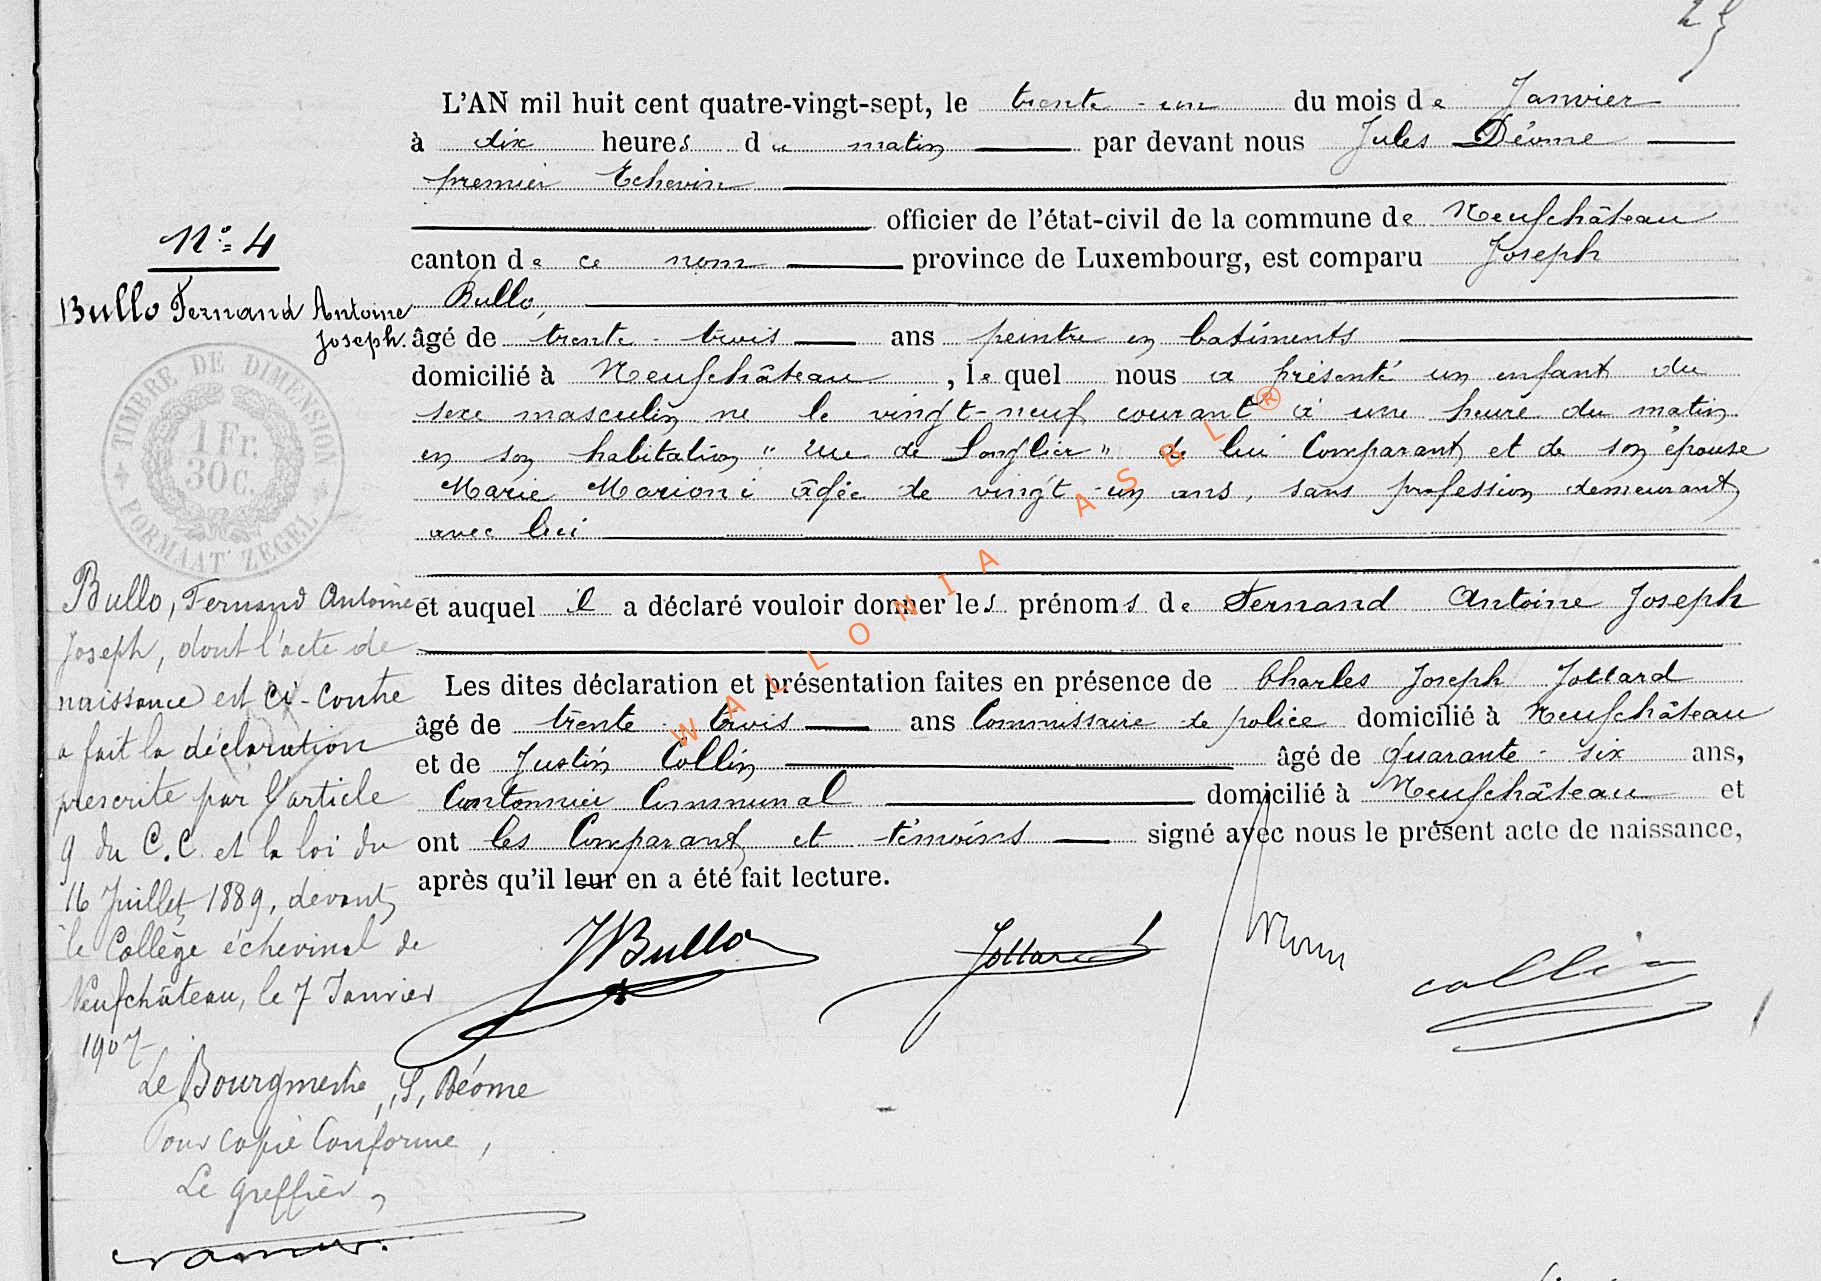 25
L'AN mil huit cent quatre-vingt-sept, le trente-un du mois de Janvier
à dix heures du matin par devant nous Jules Déome
premier Echevin
officier de l'état-civil de la commune de Neufchâteau
canton de ce nom province de Luxembourg, est comparu Joseph
Bullo,
âgé de trente-trois ans peintre en batiments
domicilié à Neufchâteau, le quel nous a présenté un enfant du
sexe masculin né le vingt-neuf courant à une heure du matin
en son habitation "rue de Longlier" de lui Comparant et de son épouse
Marie Marioni âgée de vingt-un ans, sans profession demeurant
avec lui
et auquel il a déclaré vouloir donner les prénoms de Fernand Antoine Joseph
Les dites déclaration et présentation faites en présence de Charles Joseph Jottard
âgé de trente-trois ans Commissaire de police domicilié à Neufchâteau
et de Justin Collin âgé de quarante-six ans,
Cantonnier Communal domicilié à Neufchâteau et
ont les Comparant et témoins signé avec nous le présent acte de naissance,
après qu'il leur en a été fait lecture.
JBullo Jottard Déome Collin
N° 4
Bullo Fernand Antoine
Joseph.
TIMBRE DE DIMENSION
1 Fr.
30 C.
FORMAAT ZEGEL
Bullo, Fernand Antoine
Joseph, dont l'acte de
naissance est ci-contre
a fait la déclaration
prescrite par l'article
9 du C.C. et la loi du
16 Juillet 1889, devant
le Collège échevinal de
Neufchâteau, le 7 Janvier
1907
Le Bourgmestre, S, Déome
Pour copie Conforme,
Le greffier,
WALLONIA ASBL ®